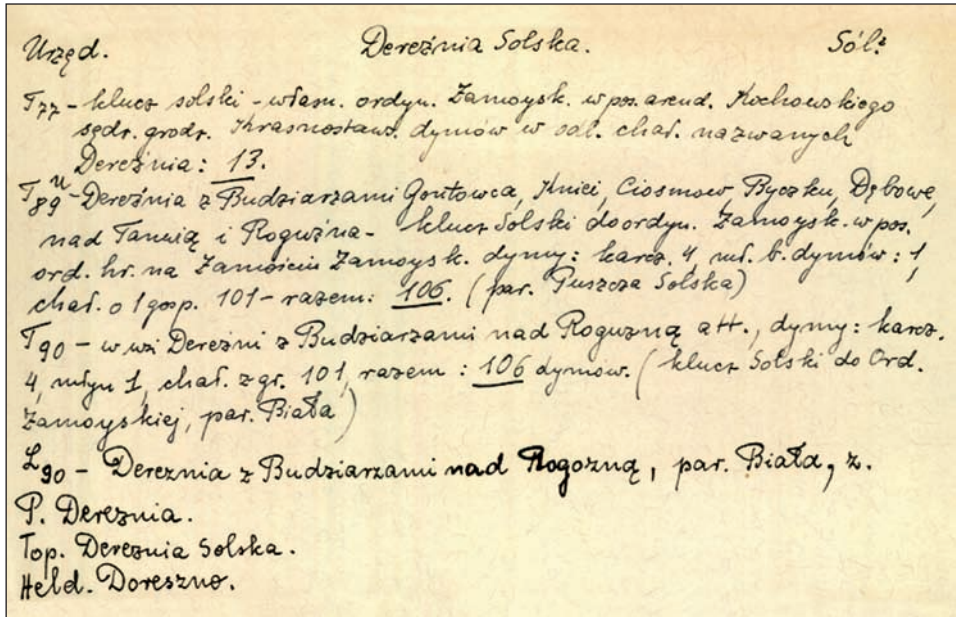 Urzęd. Dereźnia Solska. Sól.
T77 - klucz solski - własn. ordyn. Zamoysk. w pos. arend. Kochowskiego
sędz. grodz. Krasnostaws. dymów w odl. chał. nazwanych
Dereźnia: 13.
T89 - Dereźnia z Budziarzami Gontowca, Kniei, Ciosmow, Byczku, Dębowe,
nad Tanwią i Rogużna - klucz Solski do ordyn. Zamoysk. w pos.
ord. hr. na Zamościu Zamoysk. dymy: karcz. 4, mł. b. dymów: 1,
chał. o 1 gosp. 101 - razem: 106. (par. Puszcza Solska)
T90 - w wsi Dereźni z Budziarzami nad Roguzną att., dymy: karcz.
4, młyn 1, chał. z gr. 101, razem: 106 dymów. (klucz Solski do Ord.
Zamoyskiej, par. Biała)
L90 - Dereznia z Budziarzami nad Rogozną, par. Biała, z.
P. Dereznia.
Top. Dereznia Solska.
Held. Doreszno.